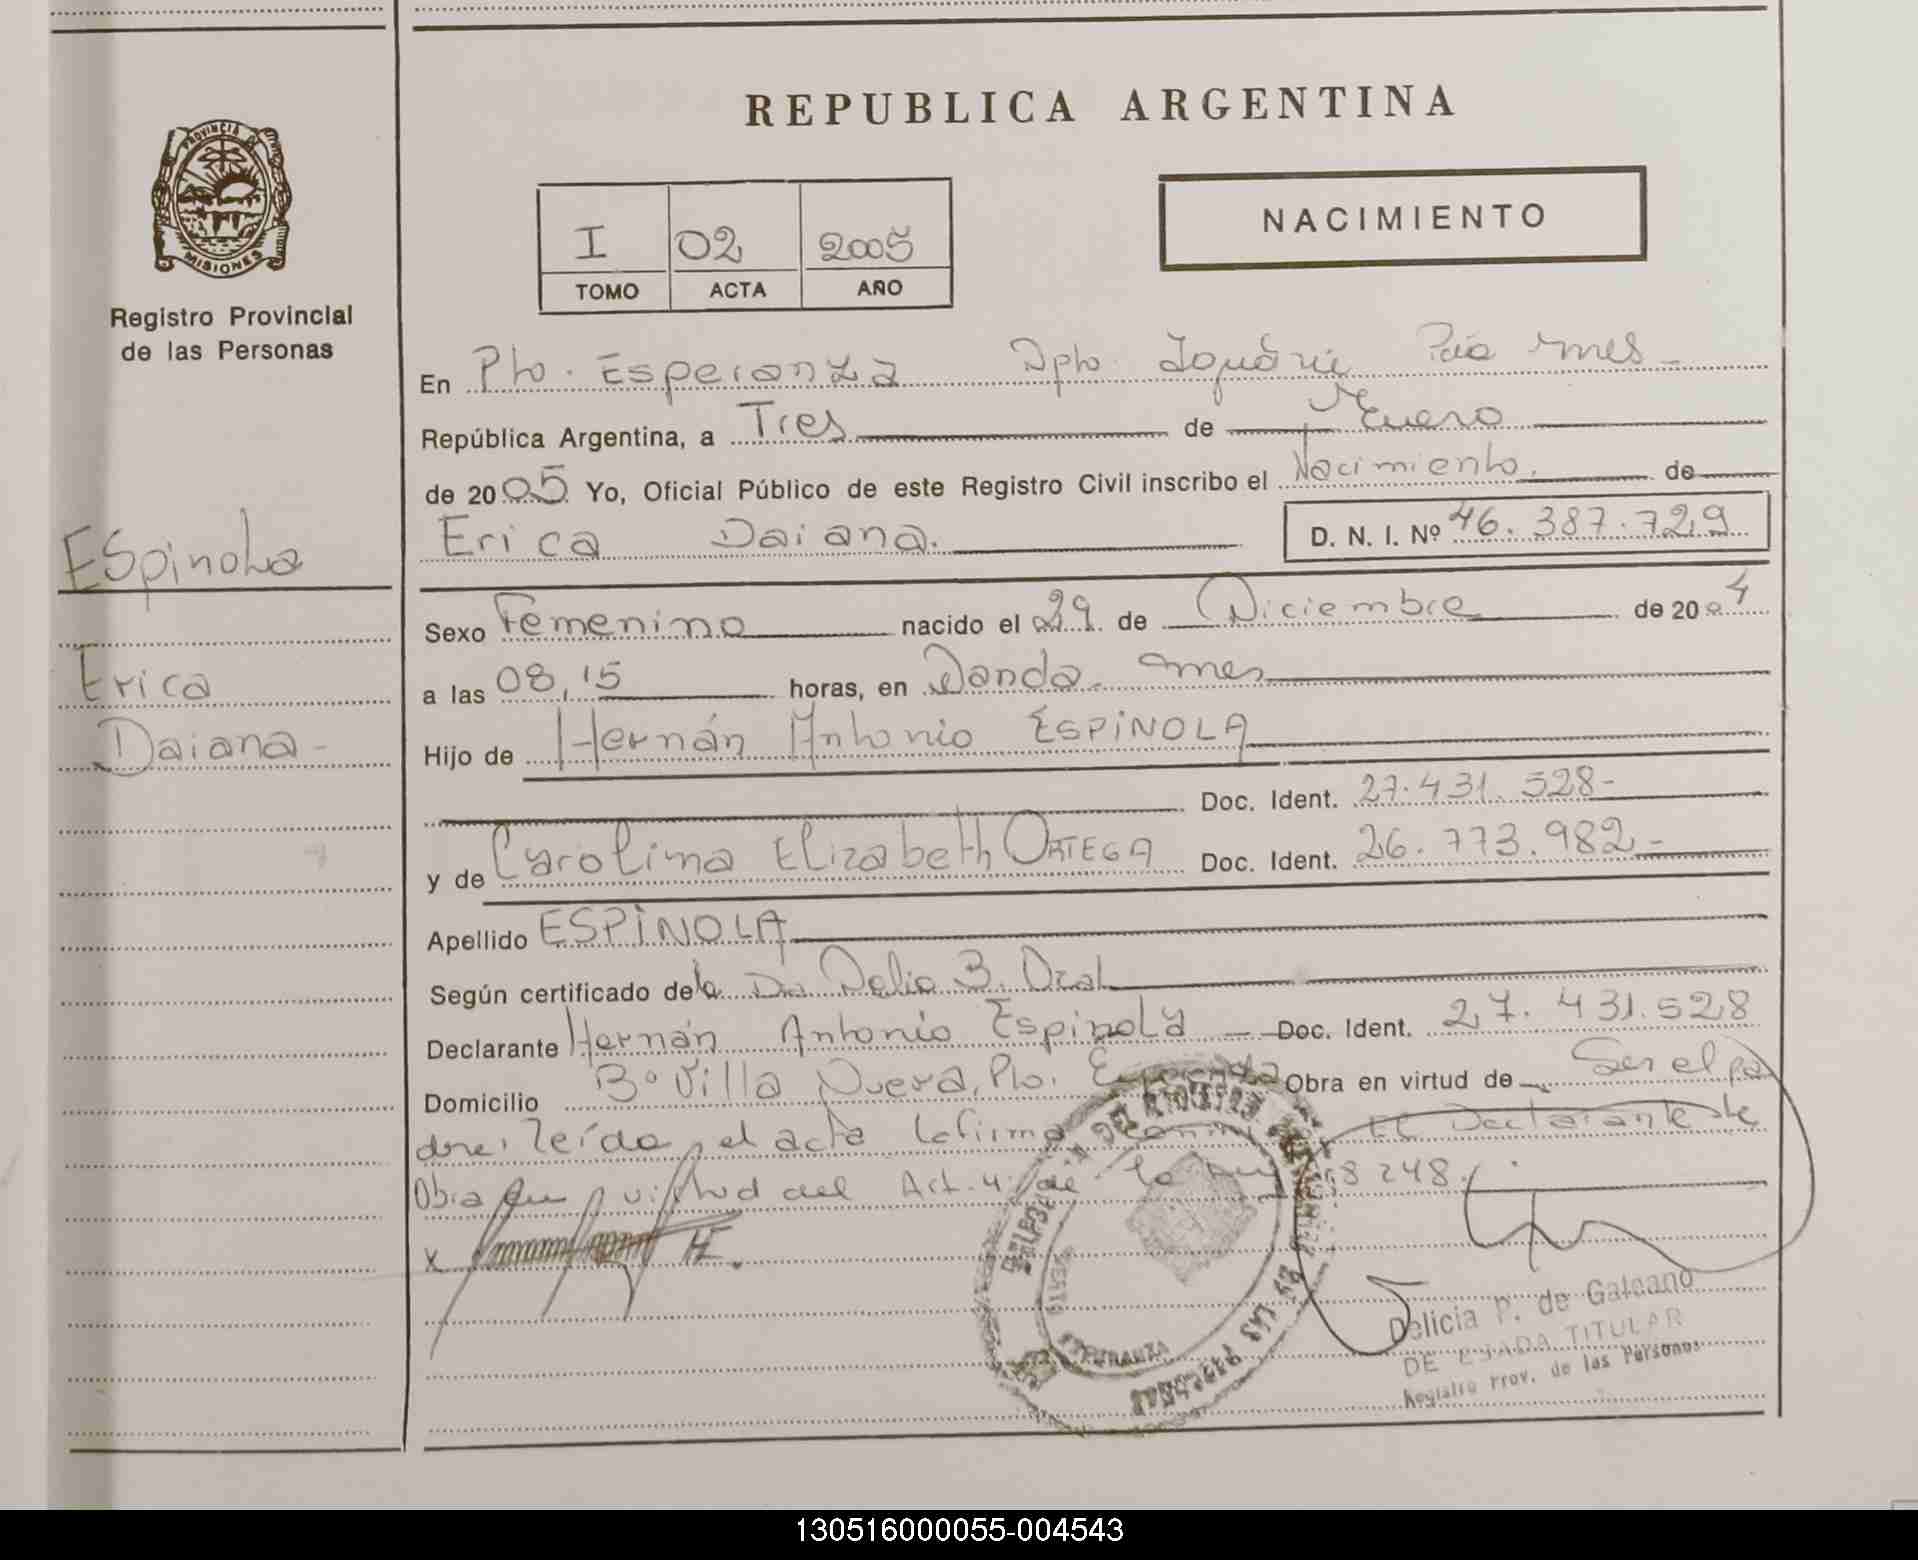 REPUBLICA ARGENTINA
PROVINCIA DE
MISIONES
Registro Provincial
de las Personas
I 02 2005
TOMO ACTA AÑO
NACIMIENTO
En Pto. Esperanza Dpto. Iguazú Pcia Mnes
República Argentina, a Tres de Enero
de 2005 Yo, Oficial Público de este Registro Civil inscribo el Nacimiento de
Erica Daiana. D. N. I. Nº 46.387.729
Espinola
Erica
Daiana-
Sexo Femenino nacido el 29 de Diciembre de 2004
a las 08,15 horas, en Wanda. mnes
Hijo de Hernán Antonio ESPINOLA
Doc. Ident. 27.431.528-
y de Carolina Elizabeth ORTEGA Doc. Ident. 26.773.982-
Apellido ESPINOLA
Según certificado de la Dra Delia B.
Declarante Hernán Antonio Espinola - Doc. Ident. 27.431.528
Domicilio Bº Villa Nueva, Pto. Esperanza Obra en virtud de Ser el pa
dre; leído el acta la firma El Declarante
Obra en virtud del Art. 4 de la 18248.
x HE.
ESPERANZA
DE LAS PERSONAS
Delicia P. de Galeano
DELEGADA TITULAR
Registro Prov. de las Personas
130516000055-004543